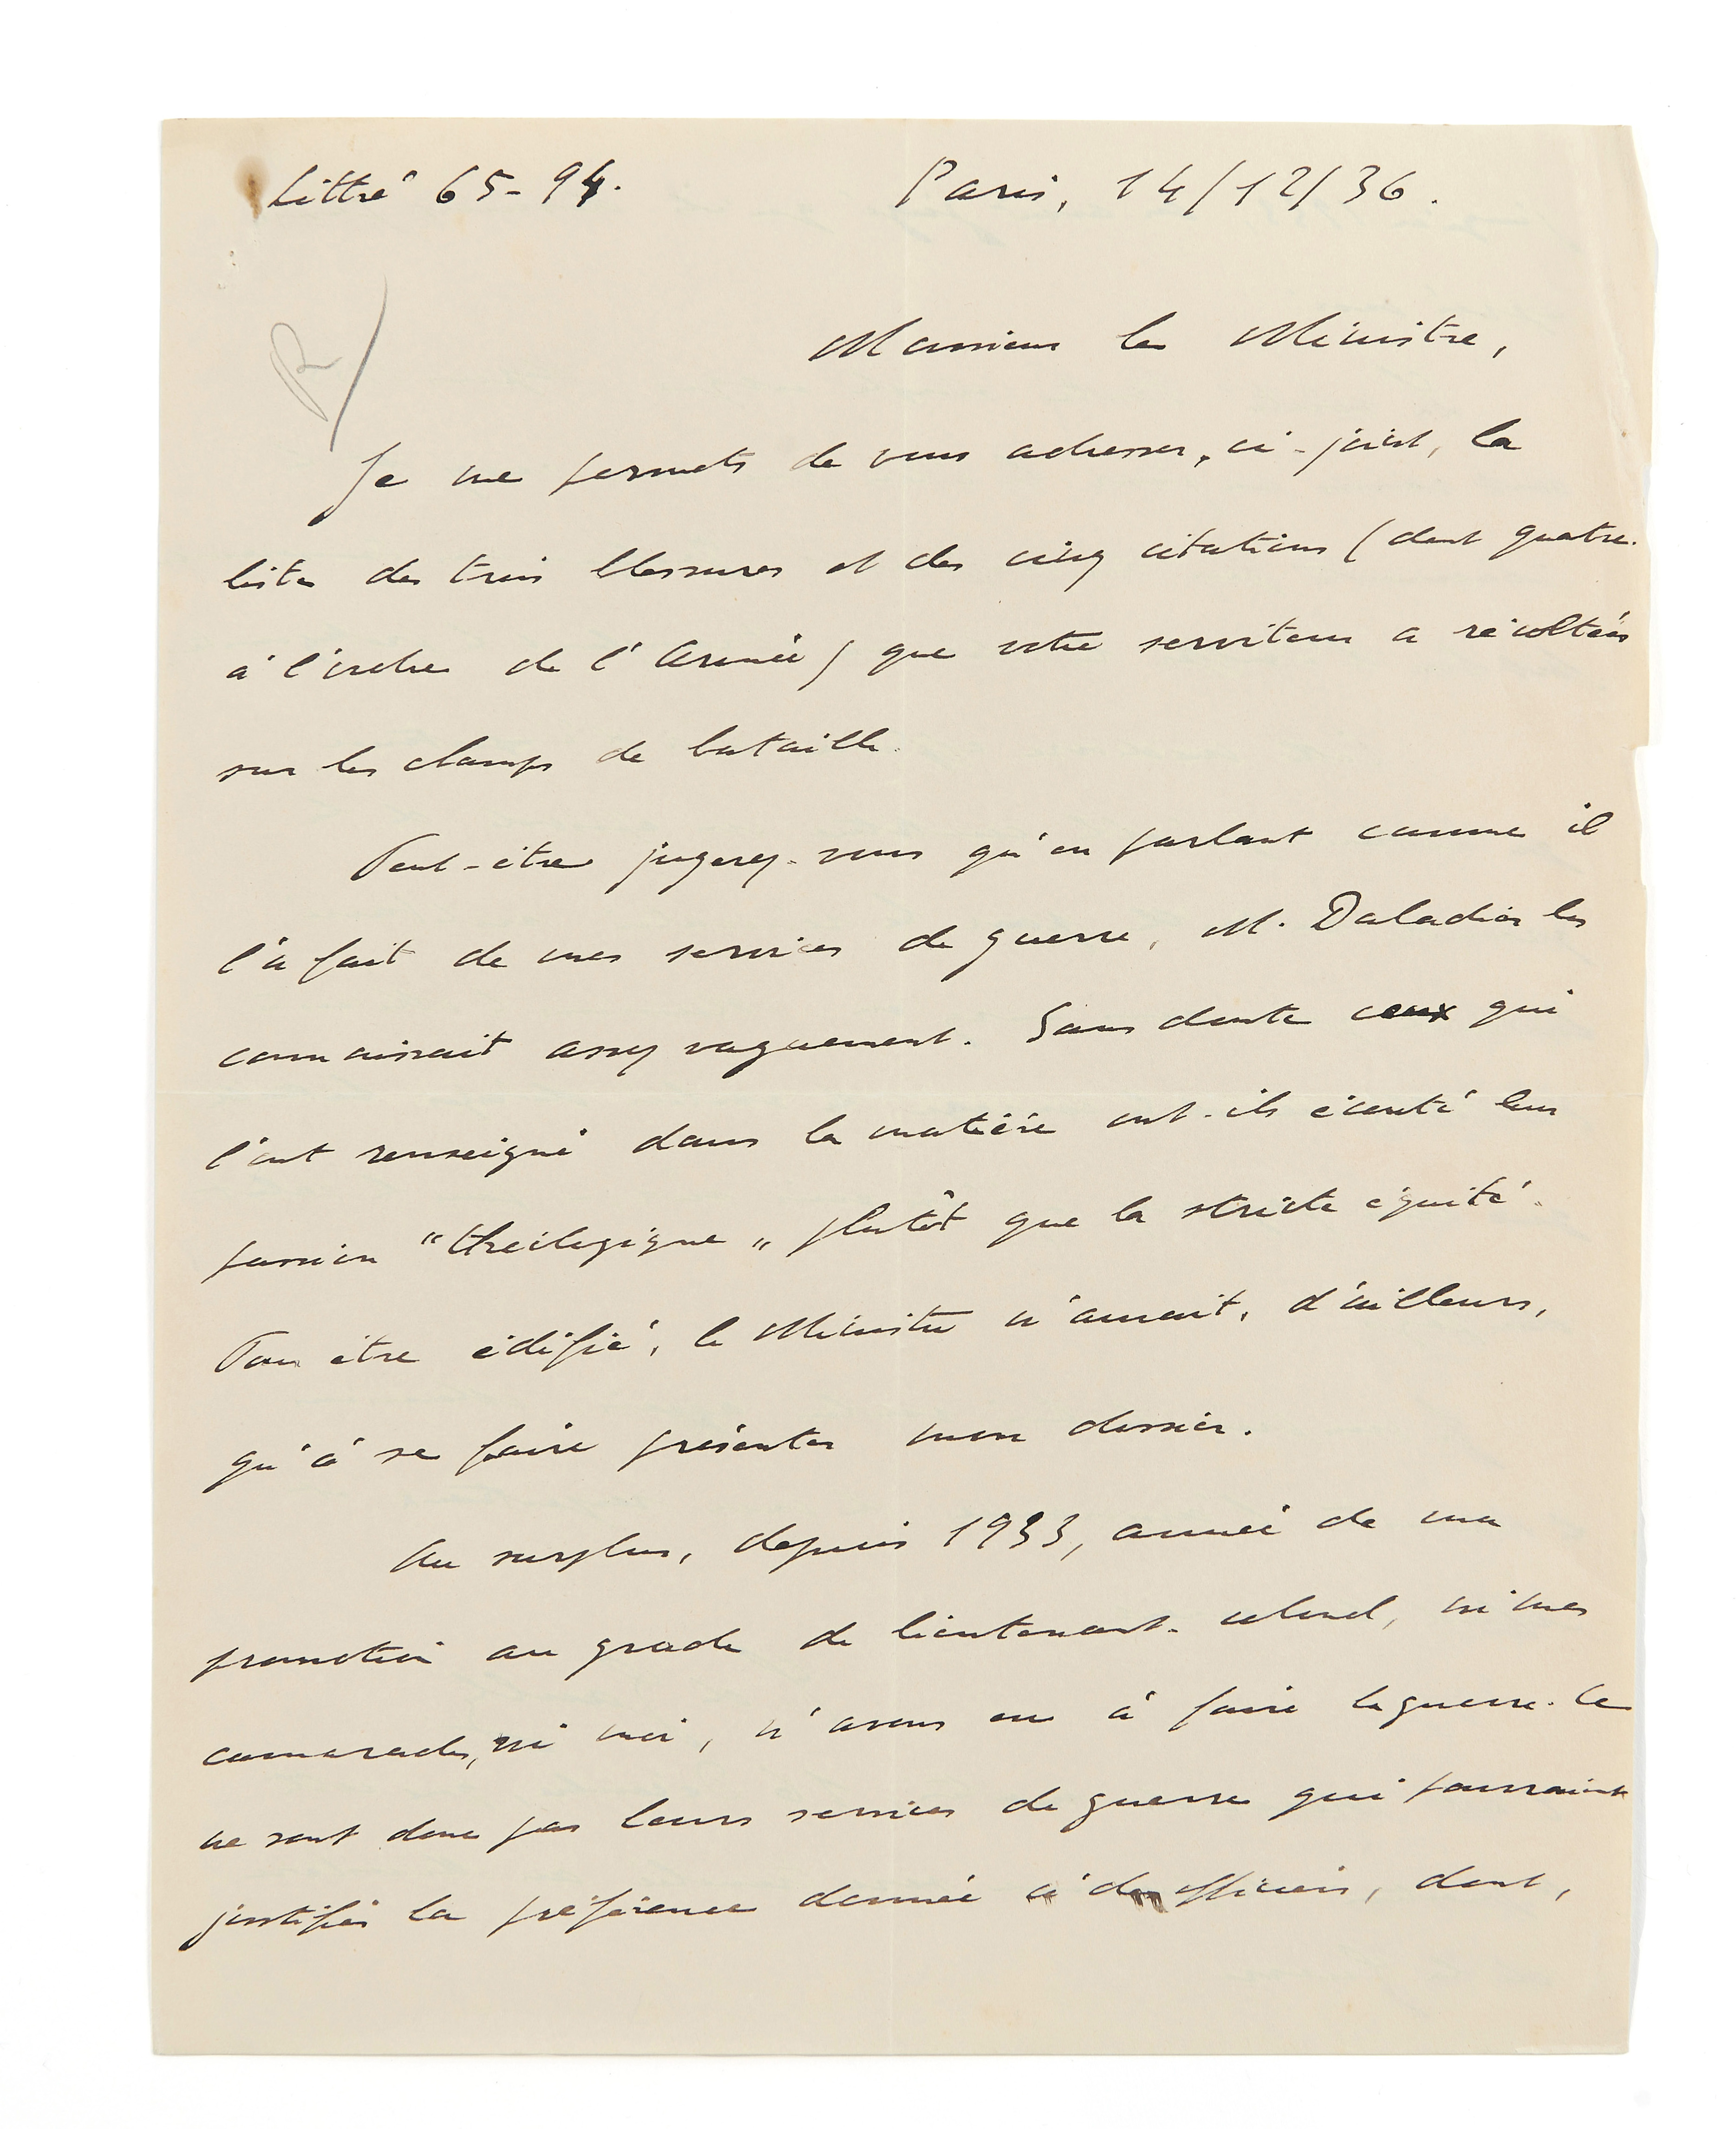 Littré 65-94.
Paris, 14/12/36.
R/
Monsieur le Ministre,
Je me permets de vous adresser, ci-joint, la
liste des trois blessures et des cinq citations (dont quatre
à l'ordre de l'Armée) que votre serviteur a récoltées
sur les champs de bataille.
Peut-être jugerez-vous qu'en parlant comme il
l'a fait de mes services de guerre, M. Daladier les
connaissait assez vaguement. Sans doute ceux qui
l'ont renseigné dans la matière ont-ils écouté leur
passion "théologique" plutôt que la stricte équité.
Pour être édifié, le Ministre n'aurait, d'ailleurs,
qu'à se faire présenter mon dossier.
Au surplus, depuis 1933, année de ma
promotion au grade de lieutenant-colonel, ni mes
camarades, ni moi, n'avons eu à faire la guerre. Ce
ne sont donc pas leurs services de guerre qui pourraient
justifier la préférence donnée à des officiers, dont,